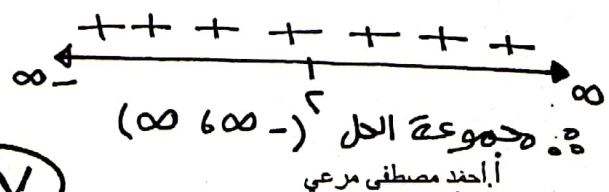 + + + + + + +
-∞ ٢ ∞
∴ مجموعة الحل (-∞ ، ∞)
أ.احمد مصطفى مرعي
٧